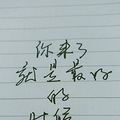 你来了
就是最好
的
时候